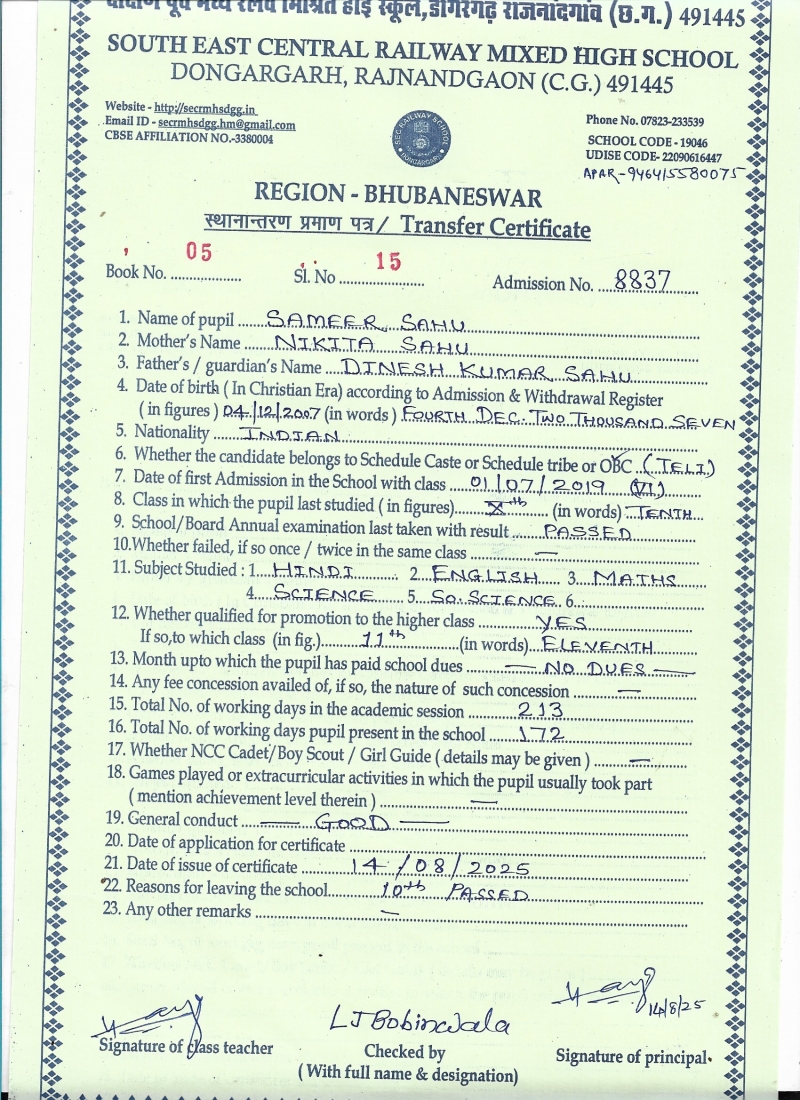 दक्षिण पूर्व मध्य रेलवे मिश्रित हाई स्कूल,डोंगरगढ़ राजनांदगांव (छ.ग.) 491445
SOUTH EAST CENTRAL RAILWAY MIXED HIGH SCHOOL
DONGARGARH, RAJNANDGAON (C.G.) 491445
Website - http://secrmhsdgg.in
Email ID - secrmhsdgg.hm@gmail.com
CBSE AFFILIATION NO.-3380004
SEC RAILWAY SCHOOL
DONGARGARH
Phone No. 07823-233539
SCHOOL CODE - 19046
UDISE CODE- 22090616447
APAR-946415580075
REGION - BHUBANESWAR
स्थानान्तरण प्रमाण पत्र / Transfer Certificate
Book No. 05 Sl. No 15 Admission No. 8837
1. Name of pupil SAMEER SAHU
2. Mother's Name NIKITA SAHU
3. Father's / guardian's Name DINESH KUMAR SAHU
4. Date of birth ( In Christian Era) according to Admission & Withdrawal Register
( in figures ) 04/12/2007 (in words) FOURTH DEC. TWO THOUSAND SEVEN
5. Nationality INDIAN
6. Whether the candidate belongs to Schedule Caste or Schedule tribe or OBC (TELI)
7. Date of first Admission in the School with class 01/07/2019 (VI)
8. Class in which the pupil last studied ( in figures) Xth (in words) TENTH
9. School/Board Annual examination last taken with result PASSED
10.Whether failed, if so once / twice in the same class —
11. Subject Studied : 1 HINDI 2 ENGLISH 3 MATHS
4 SCIENCE 5 SO. SCIENCE 6
12. Whether qualified for promotion to the higher class YES
If so,to which class (in fig.) 11th (in words) ELEVENTH
13. Month upto which the pupil has paid school dues — NO DUES —
14. Any fee concession availed of, if so, the nature of such concession —
15. Total No. of working days in the academic session 213
16. Total No. of working days pupil present in the school 172
17. Whether NCC Cadet/Boy Scout / Girl Guide ( details may be given ) —
18. Games played or extracurricular activities in which the pupil usually took part
( mention achievement level therein ) —
19. General conduct — GOOD —
20. Date of application for certificate
21. Date of issue of certificate 14/08/2025
22. Reasons for leaving the school 10th PASSED
23. Any other remarks —
14/8/25
LJBobinwala
Signature of class teacher
Checked by
(With full name & designation)
Signature of principal